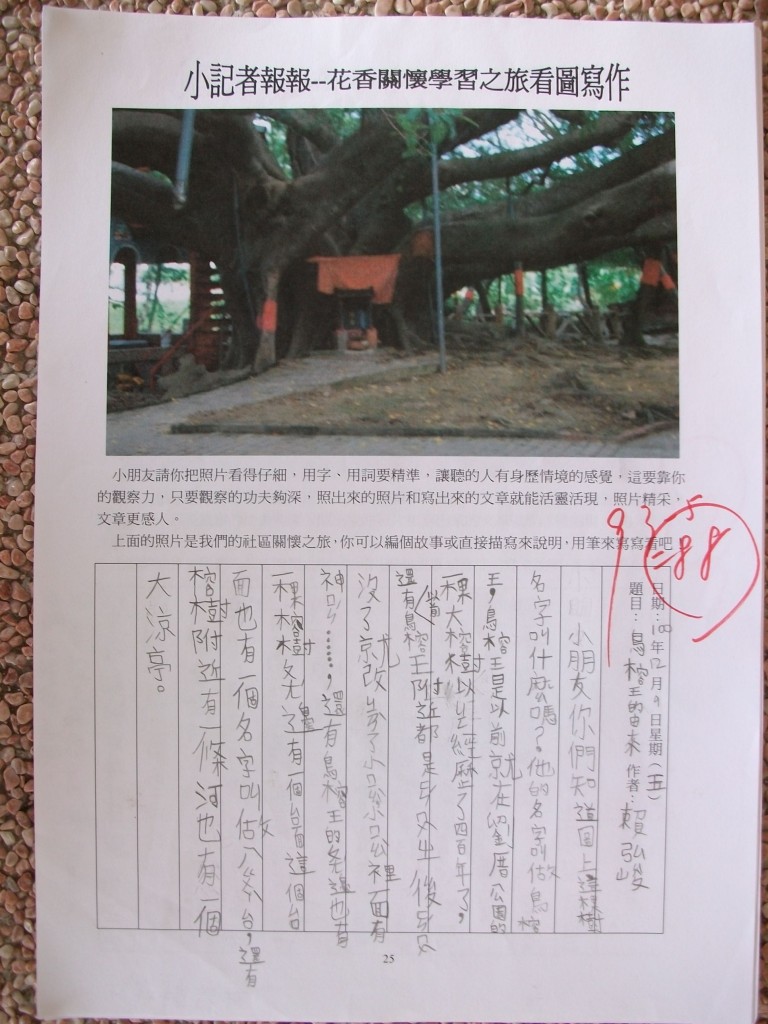 小記者報報--花香關懷學習之旅看圖寫作
小朋友請你把照片看得仔細，用字、用詞要精準，讓聽的人有身歷情境的感覺，這要靠你
的觀察力，只要觀察的功夫夠深，照出來的照片和寫出來的文章就能活靈活現，照片精采，
文章更感人。
上面的照片是我們的社區關懷之旅，你可以編個故事或直接描寫來說明，用筆來寫寫看吧！
日期：100年12月9日星期（五）
題目：鳥榕王的由來 作者：賴弘峻
小朋友你們知道圖上這棵樹
名字叫什麼嗎？他的名字叫做鳥榕
王，鳥榕王是以前就在 厝公園的
一棵大榕樹以生經歷了四百年了，
還有鳥榕王附近都是 後
沒了就改 了 裡面有
神 ……，還有鳥榕王的旁邊也有
一棵榕樹旁邊有一個台面這個台
面也有一個名字叫做 台，還有
榕樹附近有一條河也有一個
大涼亭。
25